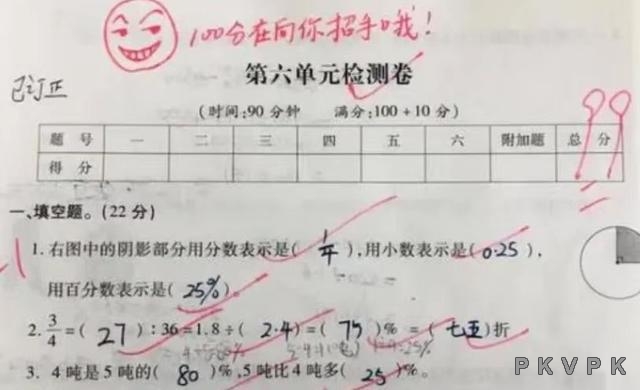 100分在向你招手哦!
第六单元检测卷
已订正
(时间:90分钟 满分:100+10分)
题号 一 二 三 四 五 六 附加题 总分
得分
99
一、填空题。(22分)
-1
1.右图中的阴影部分用分数表示是( 1/4 ),用小数表示是( 0.25 ),
用百分数表示是( 25% )。
2. 3/4=( 27 ):36=1.8÷( 2.4 )=( 75 )%=( 七五 )折
3. 4吨是5吨的( 80 )%,5吨比4吨多( 25 )%。
PKVPK